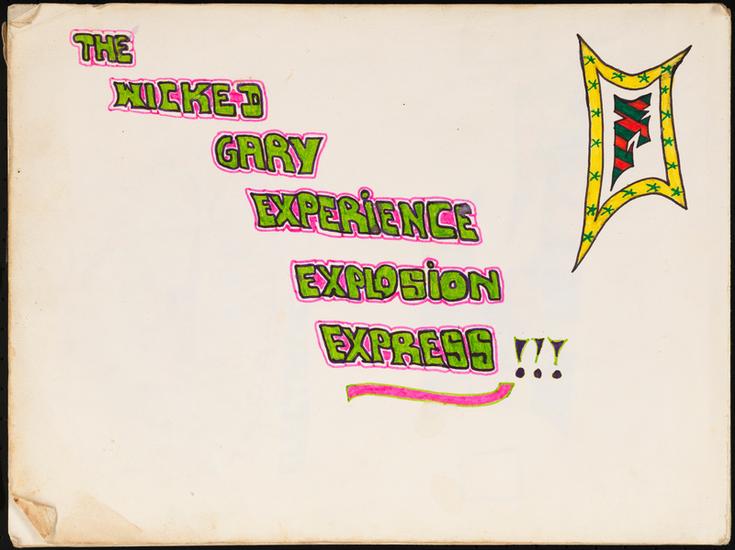 THE
WICKED
GARY
EXPERiENCE
EXPLOSiON
EXPRESS !!!